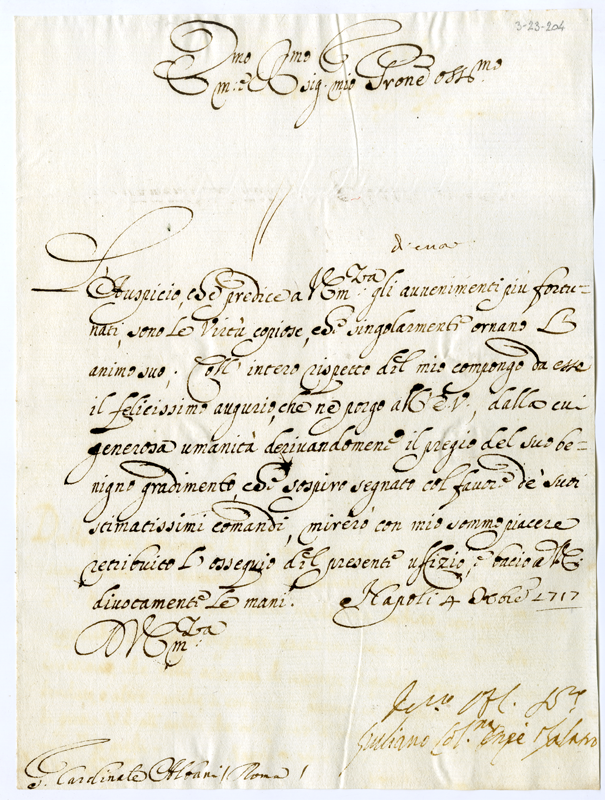 3-23-204
Emo e Rmo Sig. mio Prone ossmo
L'Auspicio, che predice a V. Emza gli avvenimenti più fortu-
nati, sono le Virtù copiose, che singolarmente ornano l'
animo suo. Coll' intero rispetto del mio compongo da esse
il felicissimo augurio, che ne porgo all' E.V., dalla cui
generosa umanità derivandomene il pregio del suo be-
nigno gradimento, che sospiro segnato col favore de' suoi
stimatissimi comandi, mirerò con mio sommo piacere
retribuito l' ossequio del presente uffizio, e bacio a V.E.
divotamente le mani. Napoli 4 Xbre 1717
D V. Emza
Giuliano Colna
S. Cardinale Albani / Roma /